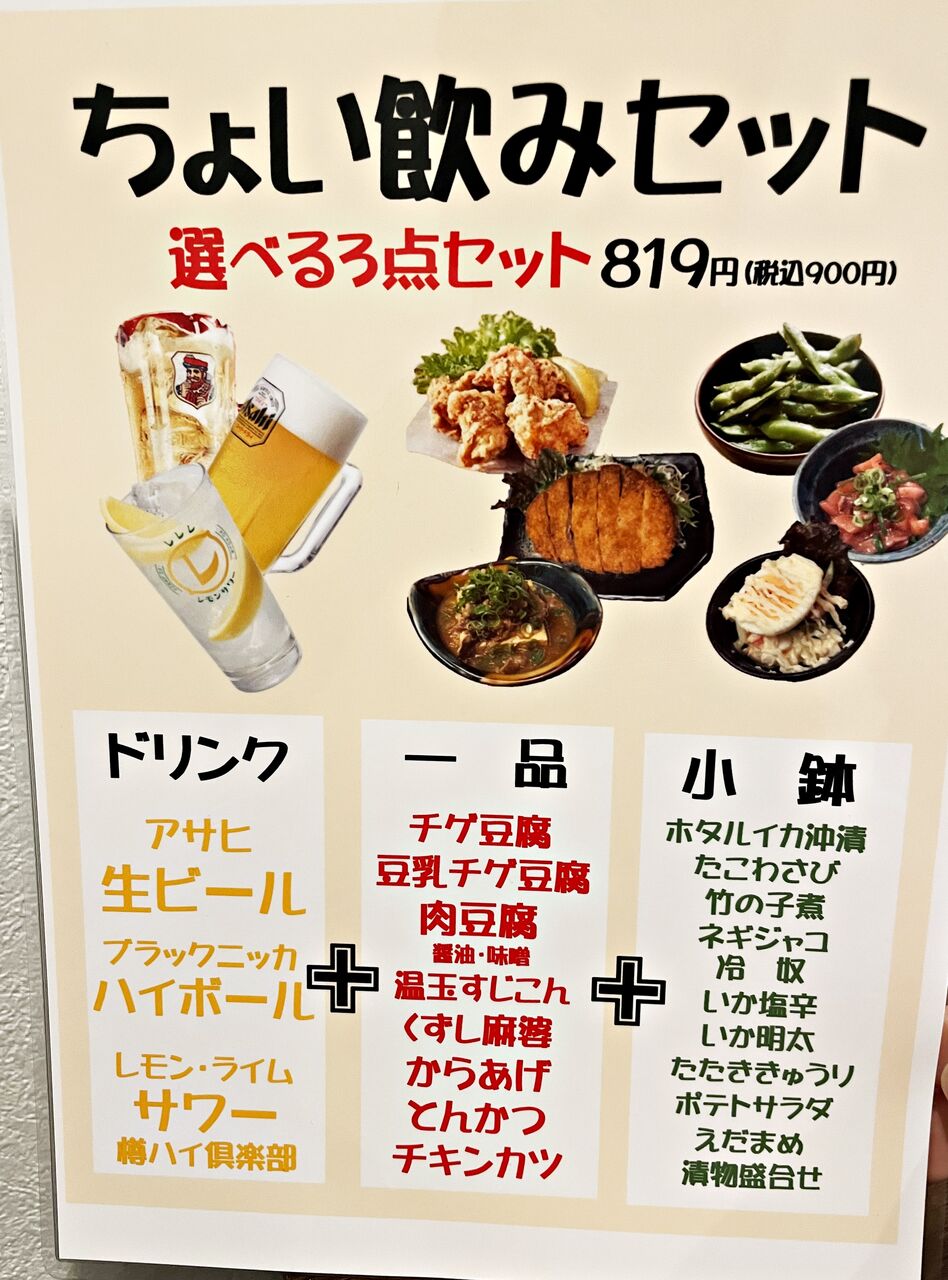 ちょい飲みセット
選べる3点セット 819円(税込900円)
Asahi
レモンサワー
ドリンク
アサヒ
生ビール
ブラックニッカ
ハイボール
レモン・ライム
サワー
樽ハイ倶楽部
+
一 品
チゲ豆腐
豆乳チゲ豆腐
肉豆腐
醤油・味噌
温玉すじこん
くずし麻婆
からあげ
とんかつ
チキンカツ
+
小 鉢
ホタルイカ沖漬
たこわさび
竹の子煮
ネギジャコ
冷 奴
いか塩辛
いか明太
たたききゅうり
ポテトサラダ
えだまめ
漬物盛合せ